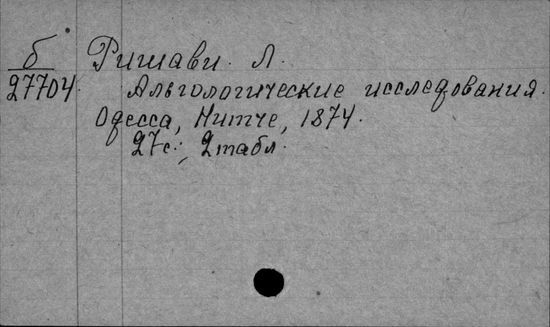 б Ришави. Л.
27704. Альгологические исследования.
Одесса, Нитче, 1874.
27с.; 2табл.